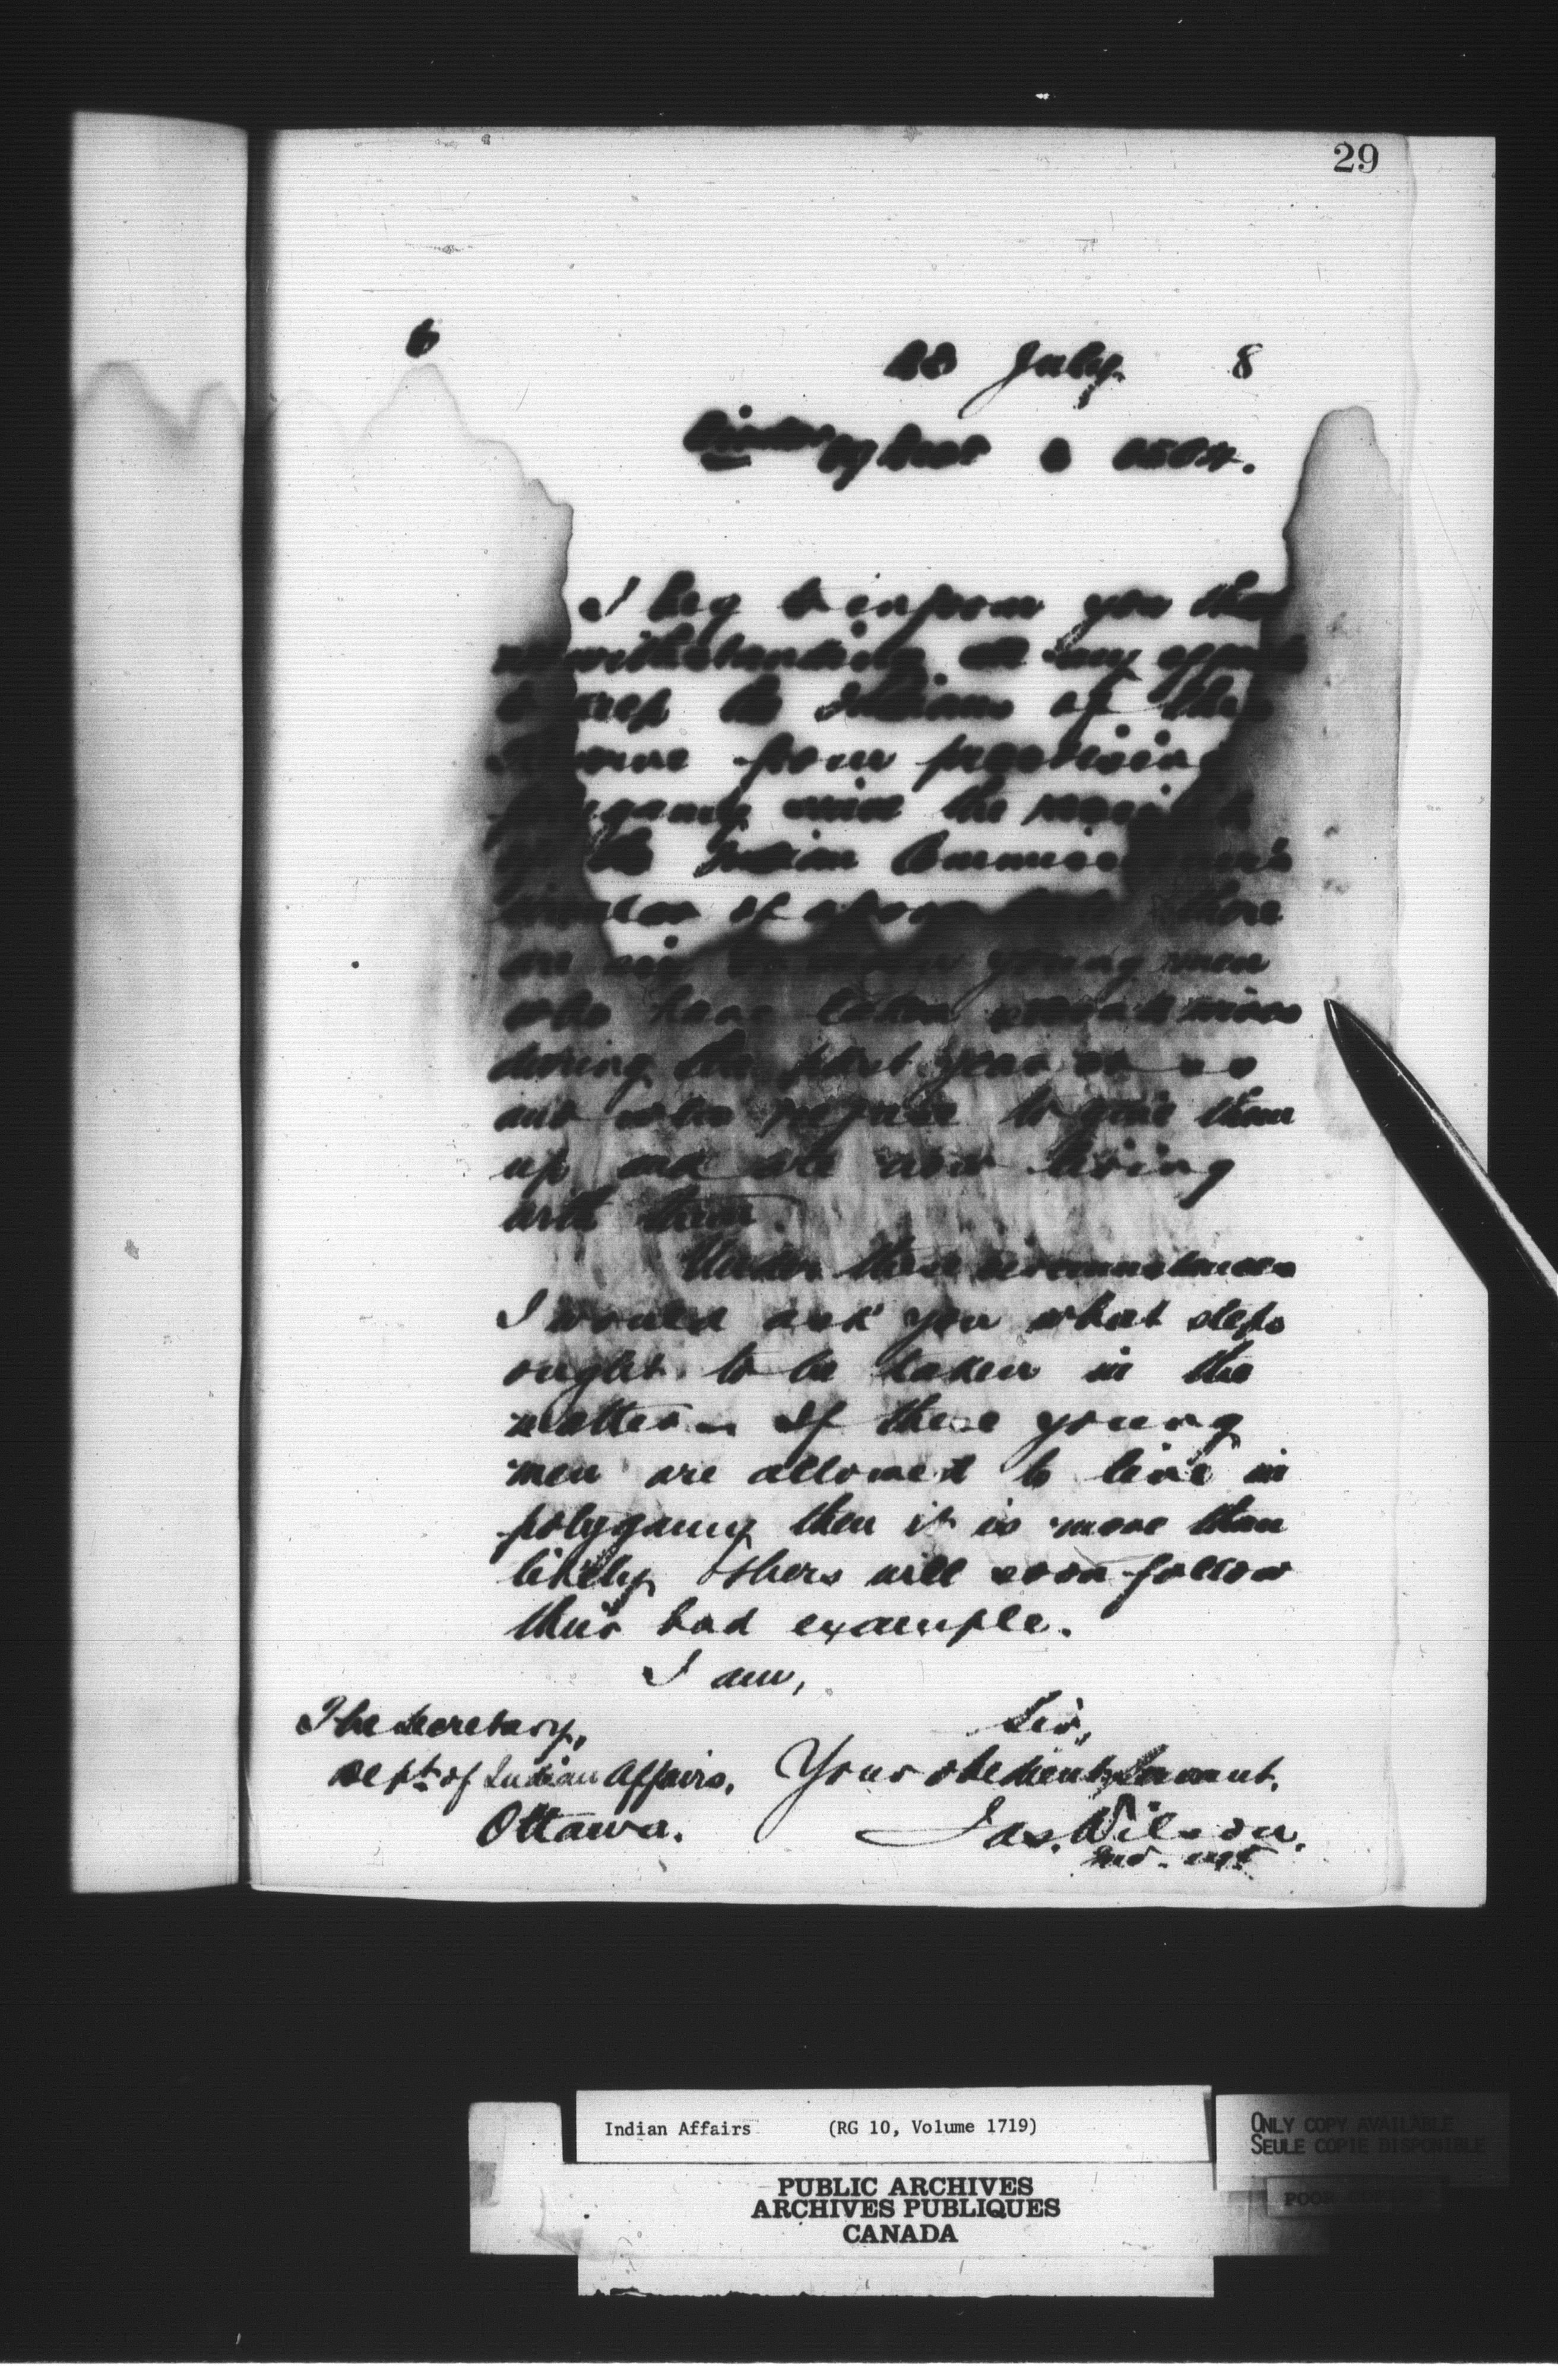 29
6
28 July. 8
I beg to inform you that
notwithstanding all my efforts
to keep the Indians of this
Reserve from practising
polygamy since the receipt
of the Indian Commissioner's
circular of above date there
are six young men
who have taken second wives
during the past year or so
and who refuse to give them
up and are now living
with them.
Under these circumstances
I would ask you what steps
ought to be taken in the
matter. If these young
men are allowed to live in
polygamy then it is more than
likely others will soon follow
their bad example.
I am,
Sir,
The Secretary,
Dept. of Indian Affairs, Your obedient Servant,
Ottawa. Jas. Wilson.
Ind. Agt
Indian Affairs (RG 10, Volume 1719)
ONLY COPY AVAILABLE
SEULE COPIE DISPONIBLE
PUBLIC ARCHIVES
ARCHIVES PUBLIQUES
CANADA
POOR